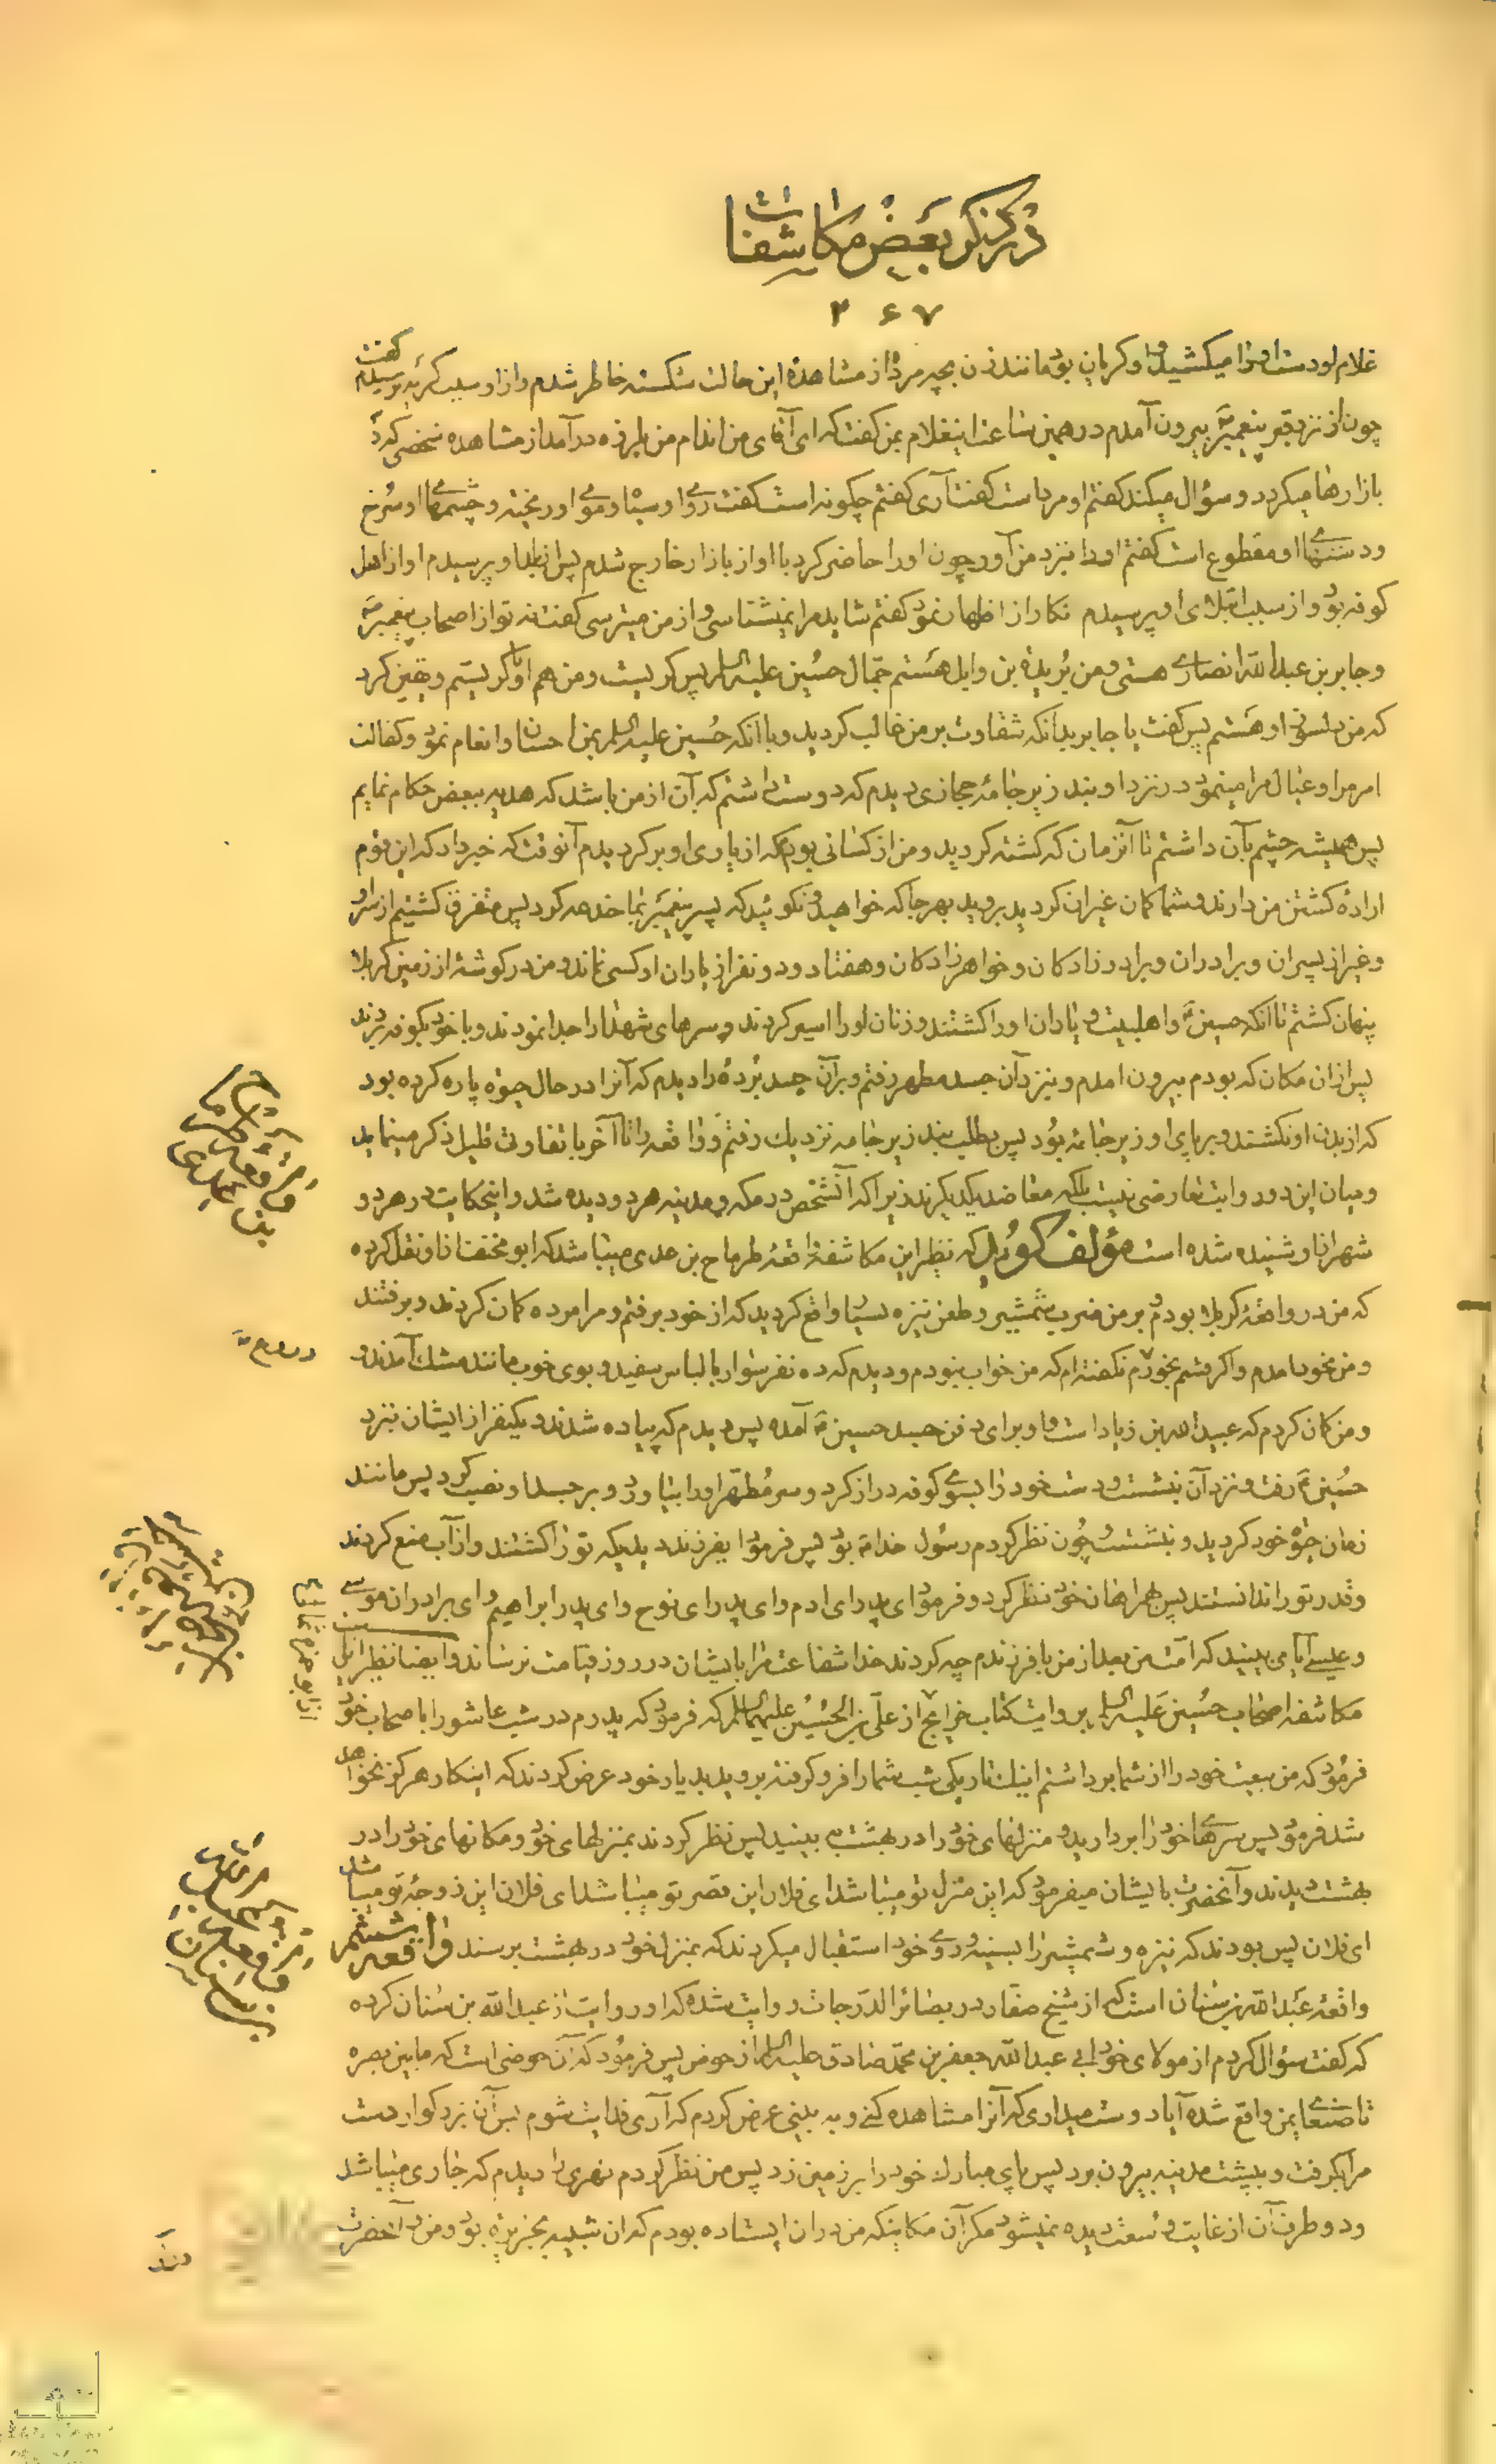 در ذکر بعض مکاشفات
۲۶۷
غلام او دست او را میکشید و او گریان بود مانند زن بچه مرده از مشاهدهٔ این حالت شکسته خاطر شدم و از او سبب گریه پرسیدم گفت
چون از نزد قبر پیغمبرؐ بیرون آمدم در همین ساعت اینغلام بمن گفت که ای آقای من اندام من بلرزه درآمد از مشاهده شخصی که در
بازارها میگردد و سؤال میکند گفتم او مرد است گفت آری گفتم چگونه است گفت روی او سیاه و موی او ریخته و چشمهای او سرخ
و دستهای او مقطوع است گفتم او را بنزد من آور چون او را حاضر کرد با او از بازار خارج شدم پس از بلد او پرسیدم او از اهل
کوفه بود و از سبب ابتلای او پرسیدم نکار از اظهار نمود گفتم شاید مرا نمیشناسی و از من میترسی گفت نه تو از اصحاب پیغمبرؐ
و جابر بن عبدالله انصاری هستی و من بُریدة بن وایل هستم جمّال حسین علیه السلام پس گریست و من هم با او گریستم و یقین کرد
که من دلسوز او هستم پس گفت یا جابر بدانکه شقاوت بر من غالب گردید و با آنکه حُسین علیه السلام بمن احسان و انعام نمود و کفالت
امر من و عیال مرا مینمود در نزد او بند زیر جامهٔ حجازی دیدم که دوست داشتم که آن از من باشد که هدیه ببعض حکام نمایم
پس همیشه چشم بآن داشتم تا آنزمان که کشته گردید و من از کسانی بودم که از یاری او برگردیدم آنوقت که خبر داد که این قوم
ارادهٔ کشتن من دارند و شما کمان غیران گردید بروید بهر جا که خواهید و نگوئید که پسر پیغمبرؐ بما خدعه کرد پس متفرق گشتیم از سر او
و غیر از پسران و برادران و برادرزادگان و خواهرزادگان و هفتاد و دو نفر از یاران او کسی نماند و من در گوشهٔ از زمین کربلا
پنهان گشتم تا آنکه حسینؑ و اهلبیت و یاران او را کشتند و زنان او را اسیر کردند و سرهای شهدا را جدا نمودند و با خود بکوفه بردند
پس از آن مکان که بودم بیرون امدم و بنزد آن جسد مطهر رفتم و بر آن جسد بُردهٔ را دیدم که آنرا در حال حیوة پاره کرده بود
که از بدن او نکشند و بر پای او زیر جامه بُود پس بطلب بند زیر جامه نزدیک رفتم و واقعه را تا آخر با تفاوت قلیل ذکر مینماید
و میان این دو روایت تعارضی نیست بلکه معاضد یکدیگرند زیرا که آنشخص در مکه و مدینه هر دو دیده شد و اینحکایت در هر دو
شهر از او شنیده شده است مؤلف گوید که نظیر این مکاشفه واقعهٔ طرماح بن عدی میباشد که ابو مخنف از او نقل کرده
که من در واقعهٔ کربلا بودم و بر من ضرب شمشیر و طعن نیزه بسیار واقع گردید که از خود برفتم و مرا مرده گمان کردند و برفتند
و من بخود امدم و اگر قسم بخورم نگفته‌ام که من خواب نبودم و دیدم که ده نفر سوار با لباس سفید و بوی خوب مانند مشک آمدند
و من گمان کردم که عبیدالله بن زیاد است و او برای دفن جسد حسینؑ آمده پس دیدم که پیاده شدند و یکنفر از ایشان نزد
حُسینؑ رفت و نزد آن بنشست و دست خود را بسوی کوفه دراز کرد و سر مُطهّر او را بیاورد و بر جسد او نصب کرد پس مانند
زمان حیوة خود گردید و بنشست و چون نظر کردم رسول خداؐ بود پس فرمود ایفرزند دیدیکه تو را کشتند و از آب منع کردند
و قدر تو را ندانستند پس بهمراهان خود نظر کرد و فرمود ای پدر ای ادم و ای پدر ای نوح و ای پدر ابراهیم و ای برادران موسی
و عیسی آیا می‌بینید که امّت من بعد از من با فرزندم چه کردند خدا شفاعت مرا بایشان در روز قیامت نرساند و ایضا نظیر این
مکاشفه اصحاب حسین علیه السلام بروایت کتاب خرایج از علی بن الحُسین علیهما السلام که فرمود که پدرم در شب عاشورا باصحاب خود
فرمود که من بیعت خود را از شما برداشتم اینک تاریکی شب شما را فرو گرفته بروید بدیار خود عرض کردند که اینکار هرگز نخواهد
شد فرمود پس سرهای خود را بردارید و منزلهای خود را در بهشت ببینید پس نظر کردند بمنزلهای خود و مکانهای خود را در
بهشت دیدند و آنحضرت بایشان میفرمود که این منزل تو میباشد ای فلان این قصر تو میباشد ای فلان این زوجهٔ تو میباشد
ای فلان پس بودند که نیزه و شمشیر را بسینه و روی خود استقبال میکردند که بمنزل خود در بهشت برسند واقعه ششم
واقعهٔ عبدالله بن سنان است که از شیخ صفار در بصائر الدّرجات روایت شده که او روایت از عبدالله بن سنان کرده
که گفت سؤال کردم از مولای خود ابی عبدالله جعفر بن محمّد صادق علیه السلام از حوض پس فرمود که آن حوضی است که مابین بصره
تا صنعای یمن واقع شده آیا دوست میداری که آنرا مشاهده کنی و به بینی عرض کردم که آری فدایت شوم پس آن بزرگوار دست
مرا بگرفت و بپشت مدینه بیرون برد پس پای مبارک خود را بر زمین زد پس من نظر کردم نهری را دیدم که جاری میباشد
و دو طرف آن از غایت وُسعت دیده نمیشود مگر آن مکانیکه من در ان ایستاده بودم که ان شبیه بجزیره بود و من و آنحضرت